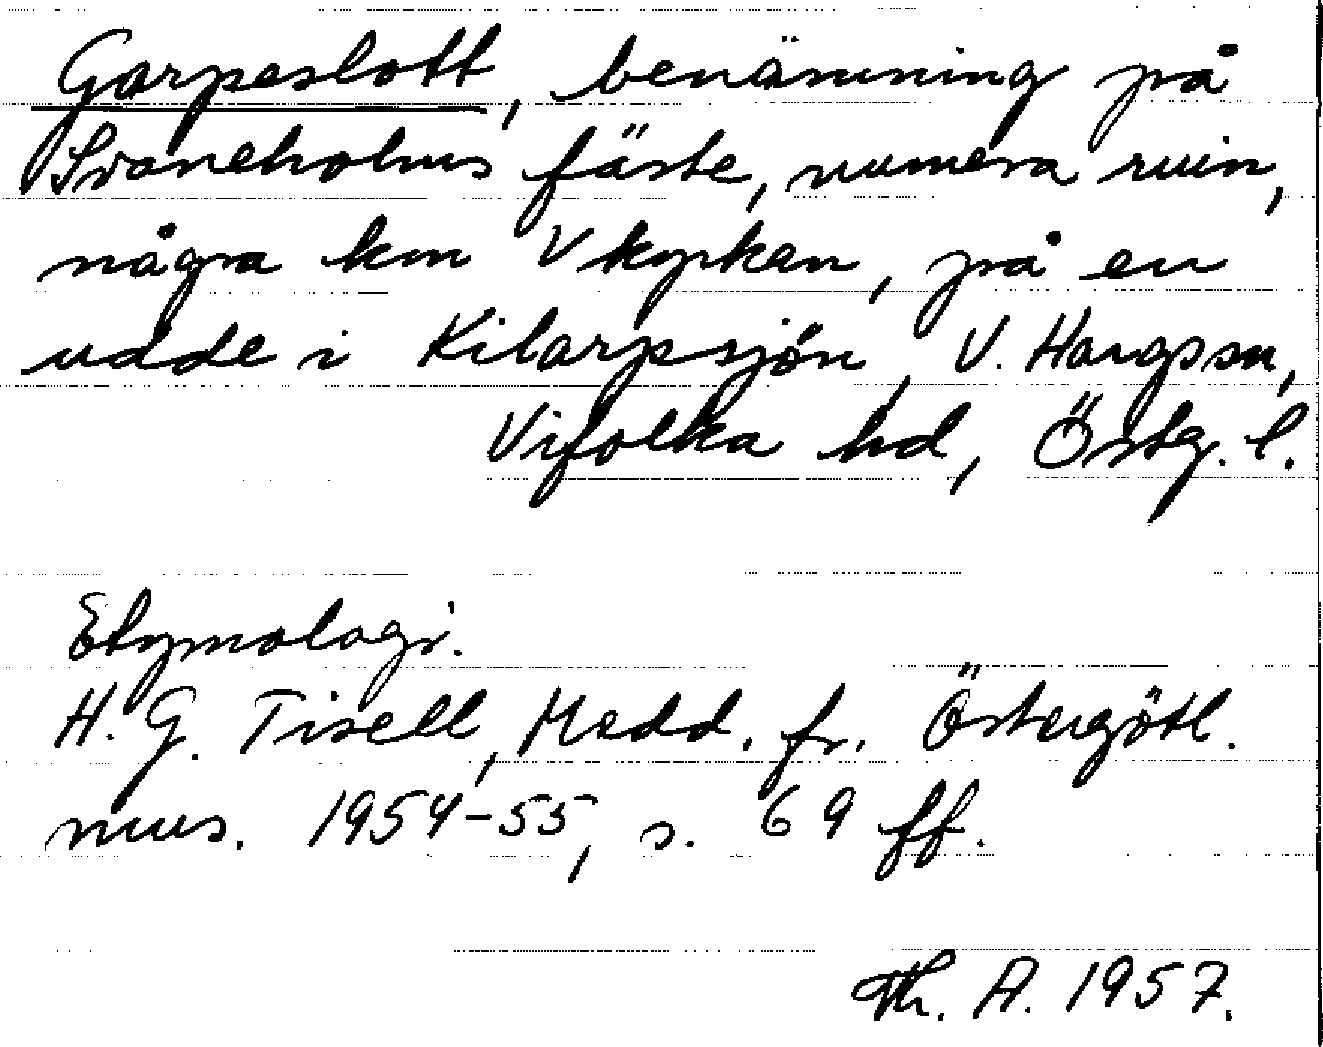 Garpeslott, benämning på
Svaneholms fäste, numera ruin,
några km V kyrkan, på en
udde i Kilarpsjön, V. Hargs sn,
Vifolka hd, Östg. l.
Etymologi.
H. G. Tisell, Medd. fr. Östergötl.
mus. 1954-55, s. 69 ff.
Th. A. 1957.